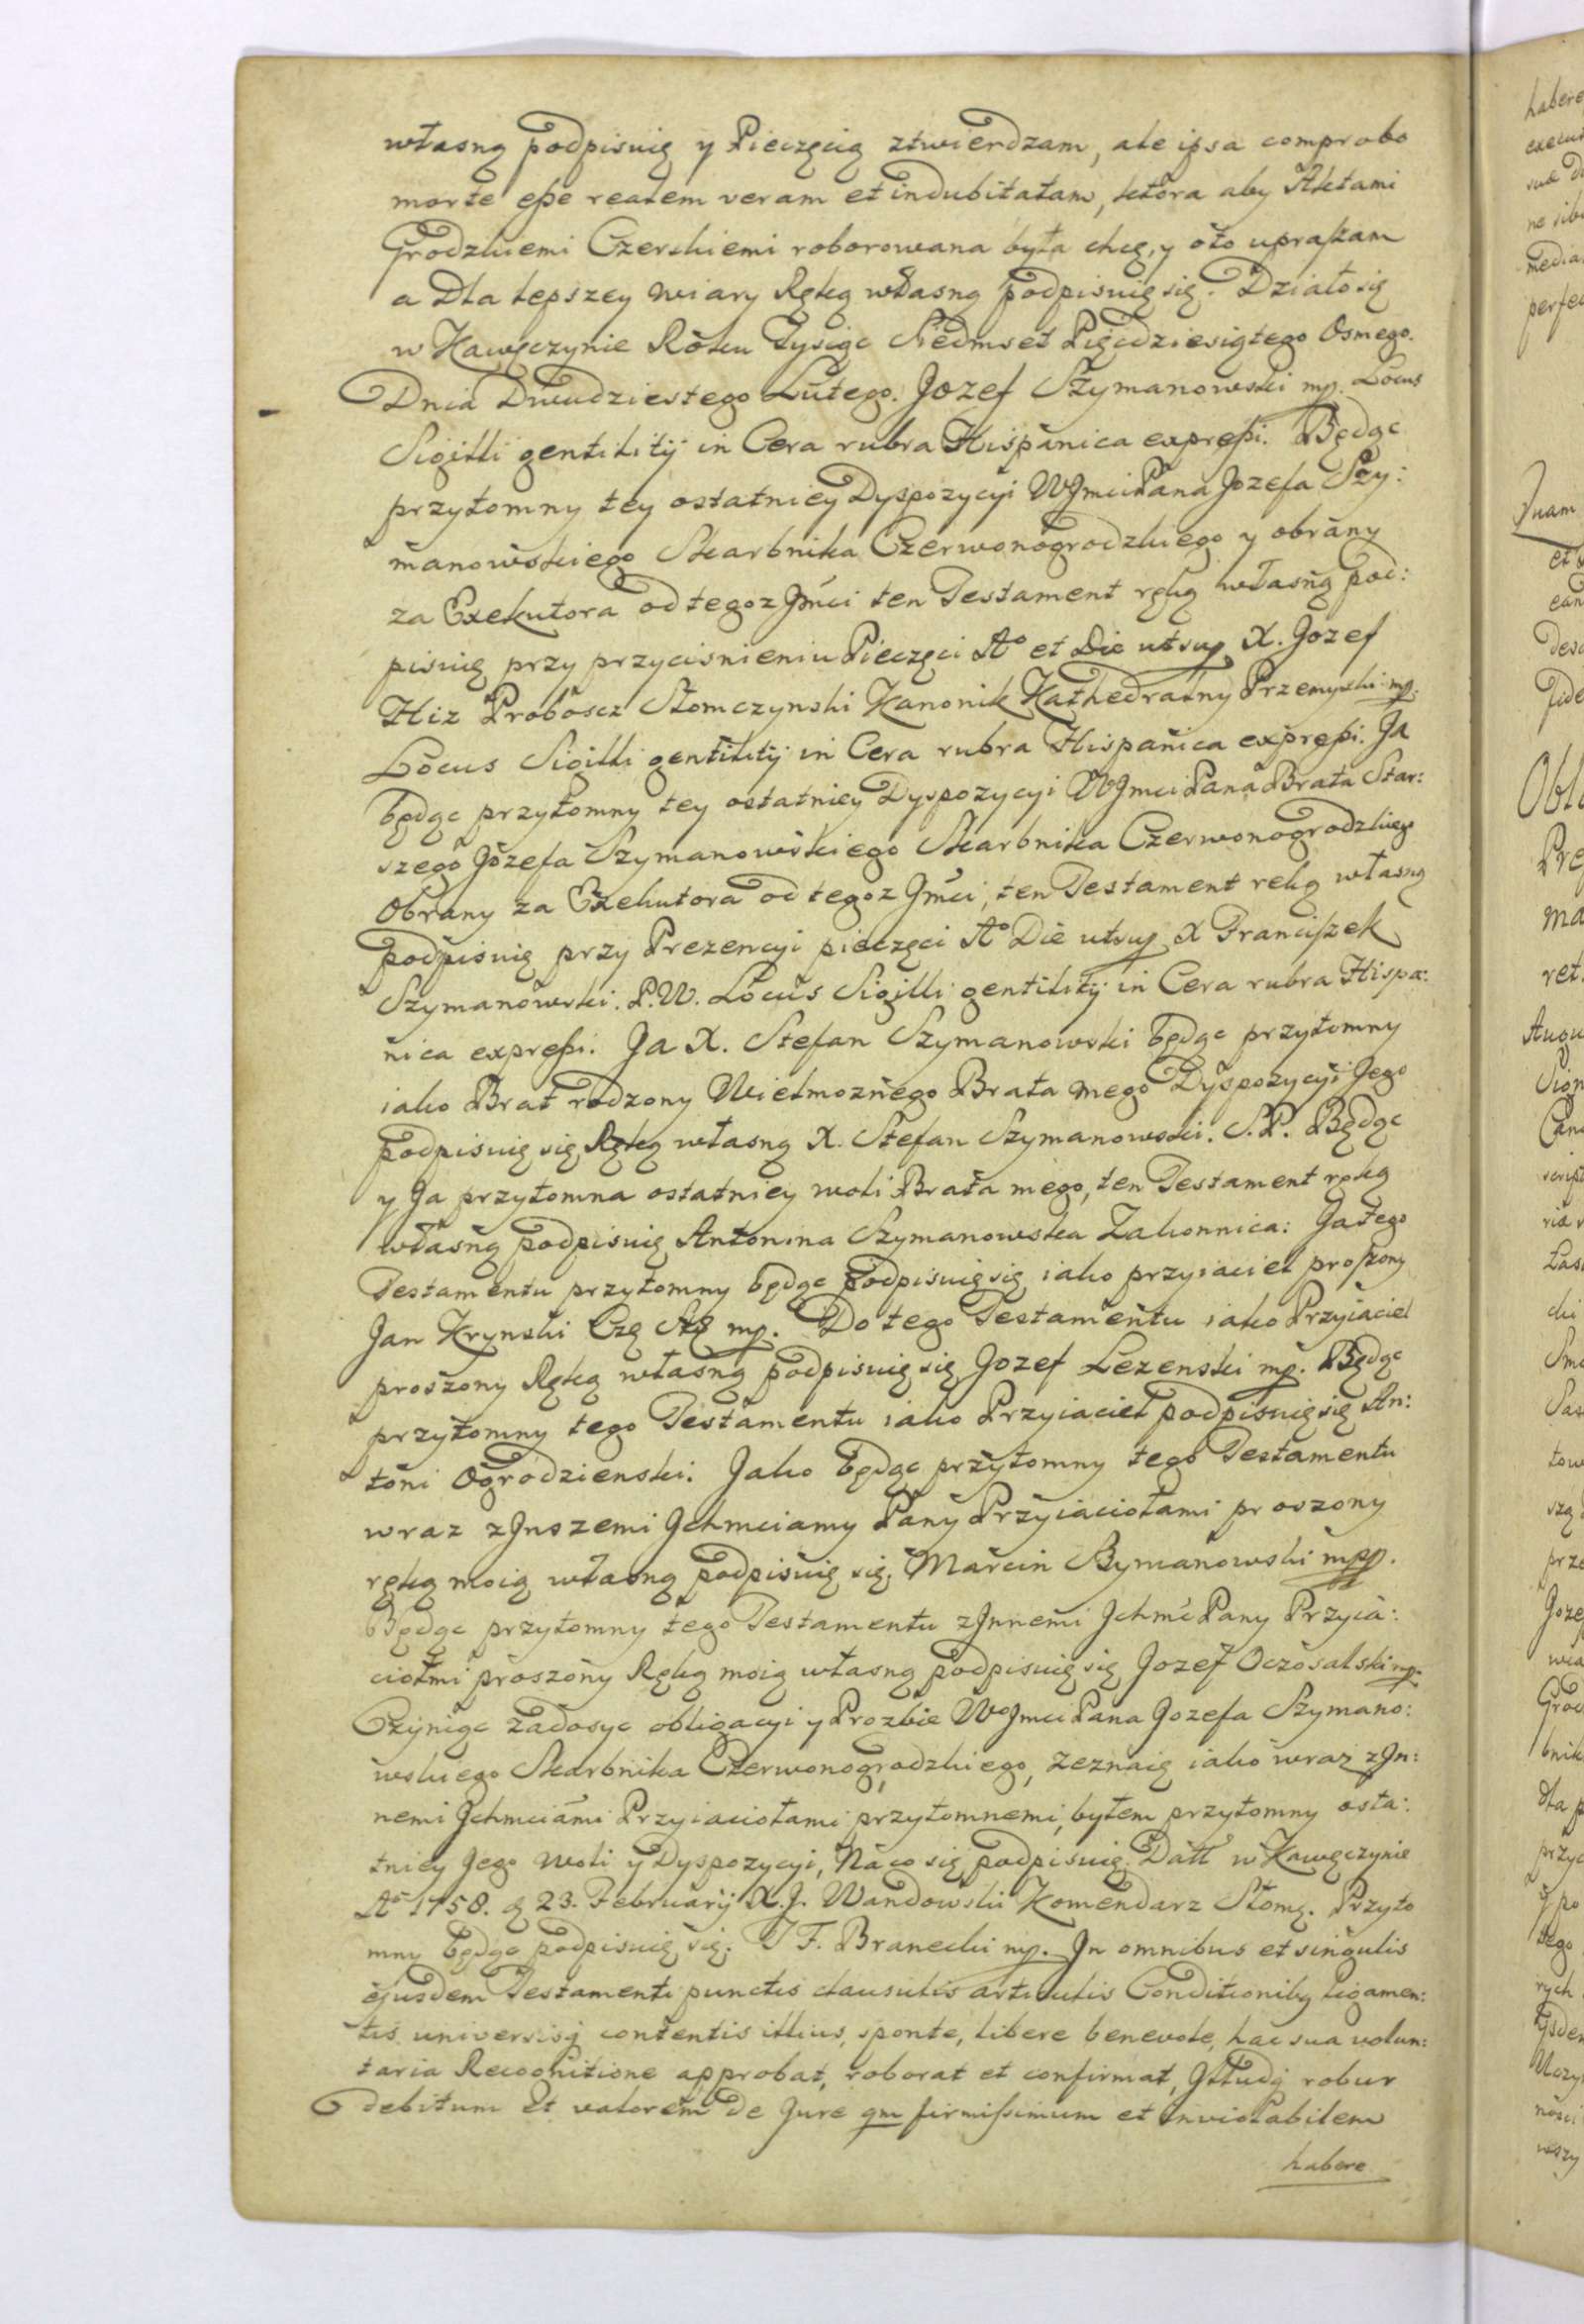 własną podpisuię y Pieczęcią ztwierdzam, ale ipsa comprobo
morte eße realem veram et indubitatam, ktora aby Aktami
Grodzkiemi Czerskiemi roborowana była chcę, y oto upraszam
a Dla lepszey wiary Ręką własną podpisuię się. Działo się
w Kawęczynie Roku Tysiąc Siedmset Pięcdziesiątego Osmego.
Dnia Dwudziestego Lutego. Jozef Szymanowski mp. Locus
Sigilli gentilitij in Cera rubra Hispanica expreßi. Będąc
przytomny tey ostatniey Dyspozycyi WJmci Pana Jozefa Szy:
manowskiego Skarbnika Czerwonogrodzkiego y obrany
za Exekutora od tegoz Jmci ten Testament ręką własną pod:
pisuię przy przycisnieniu Pieczęci Ao et Die ut sup X. Jozef
Hiz Proboscz Słomczynski Kanonik Kathedralny Przemyski mp.
Locus Sigilli gentilitij in Cera rubra Hispanica expreßi. Ja
będąc przytomny tey ostatniey Dyspozycyi WJmci Pana Brata Star:
szego Jozefa Szymanowskiego Skarbnika Czerwonogrodzkiego
Obrany za Exekutora od tegoz Jmci, ten Testament ręką własną
podpisuię przy Prezencyi pieczęci Ao Die ut sup X Franciszek
Szymanowski. P.W. Locus Sigilli gentilitij in Cera rubra Hispa:
nica expreßi. Ja X. Stefan Szymanowski będąc przytomny
iako Brat rodzony Wielmoznego Brata mego Dyspozycyi Jego
podpisuię się Ręką własną X. Stefan Szymanowski. S.P. Będąc
y Ja przytomna ostatniey woli Brata mego, ten Testament ręką
własną podpisuię Antonina Szymanowska Zakonnica: Ja tego
Testamentu przytomny będąc podpisuię się iako przyiaciel proszony
Jan Krynski mp. Do tego Testamentu iako Przyiaciel
proszony Ręką własną podpisuię się Jozef Lezenski mp. Będąc
przytomny tego Testamentu iako Przyiaciel podpisuię się An:
toni Ogrodzienski. Jako będąc przytomny tego Testamentu
wraz z Jnszemi Jchmciamy Pany Przyiaciołami proszony
ręką moią własną podpisuię się. Marcin Rymanowski mpp.
Będąc przytomny tego Testamentu z Jnnemi Jchmć Pany Przyia:
ciołmi proszony Ręką moią własną podpisuię się Jozef Oczosalski mp.
Czyniąc zadosyc obligacyi y Prozbie WoJmci Pana Jozefa Szymano:
wskiego Skarbnika Czerwonogrodzkiego, zeznaię iako wraz z Jn:
nemi Jchmciami Przyiaciołami przytomnemi, byłem przytomny osta:
tniey Jego Woli y Dyspozycyi, Na co się podpisuię. Datt w Kawęczynie
Ao 1758. d 23. Februarij X.J. Wandowski Komendarz Słom. Przyto
mny będąc podpisuię się. J F. Branecki mp. Jn omnibus et singulis
ejusdem Testamenti punctis clausulis articulis Conditionibq ligamen:
tis universisq contentis illius, sponte, libere benevole, hac sua volun:
taria Recognitione approbat, roborat et confirmat, Jlludq robur
debitum Et valorem de Jure qm firmissimum et inviolabilem
habere